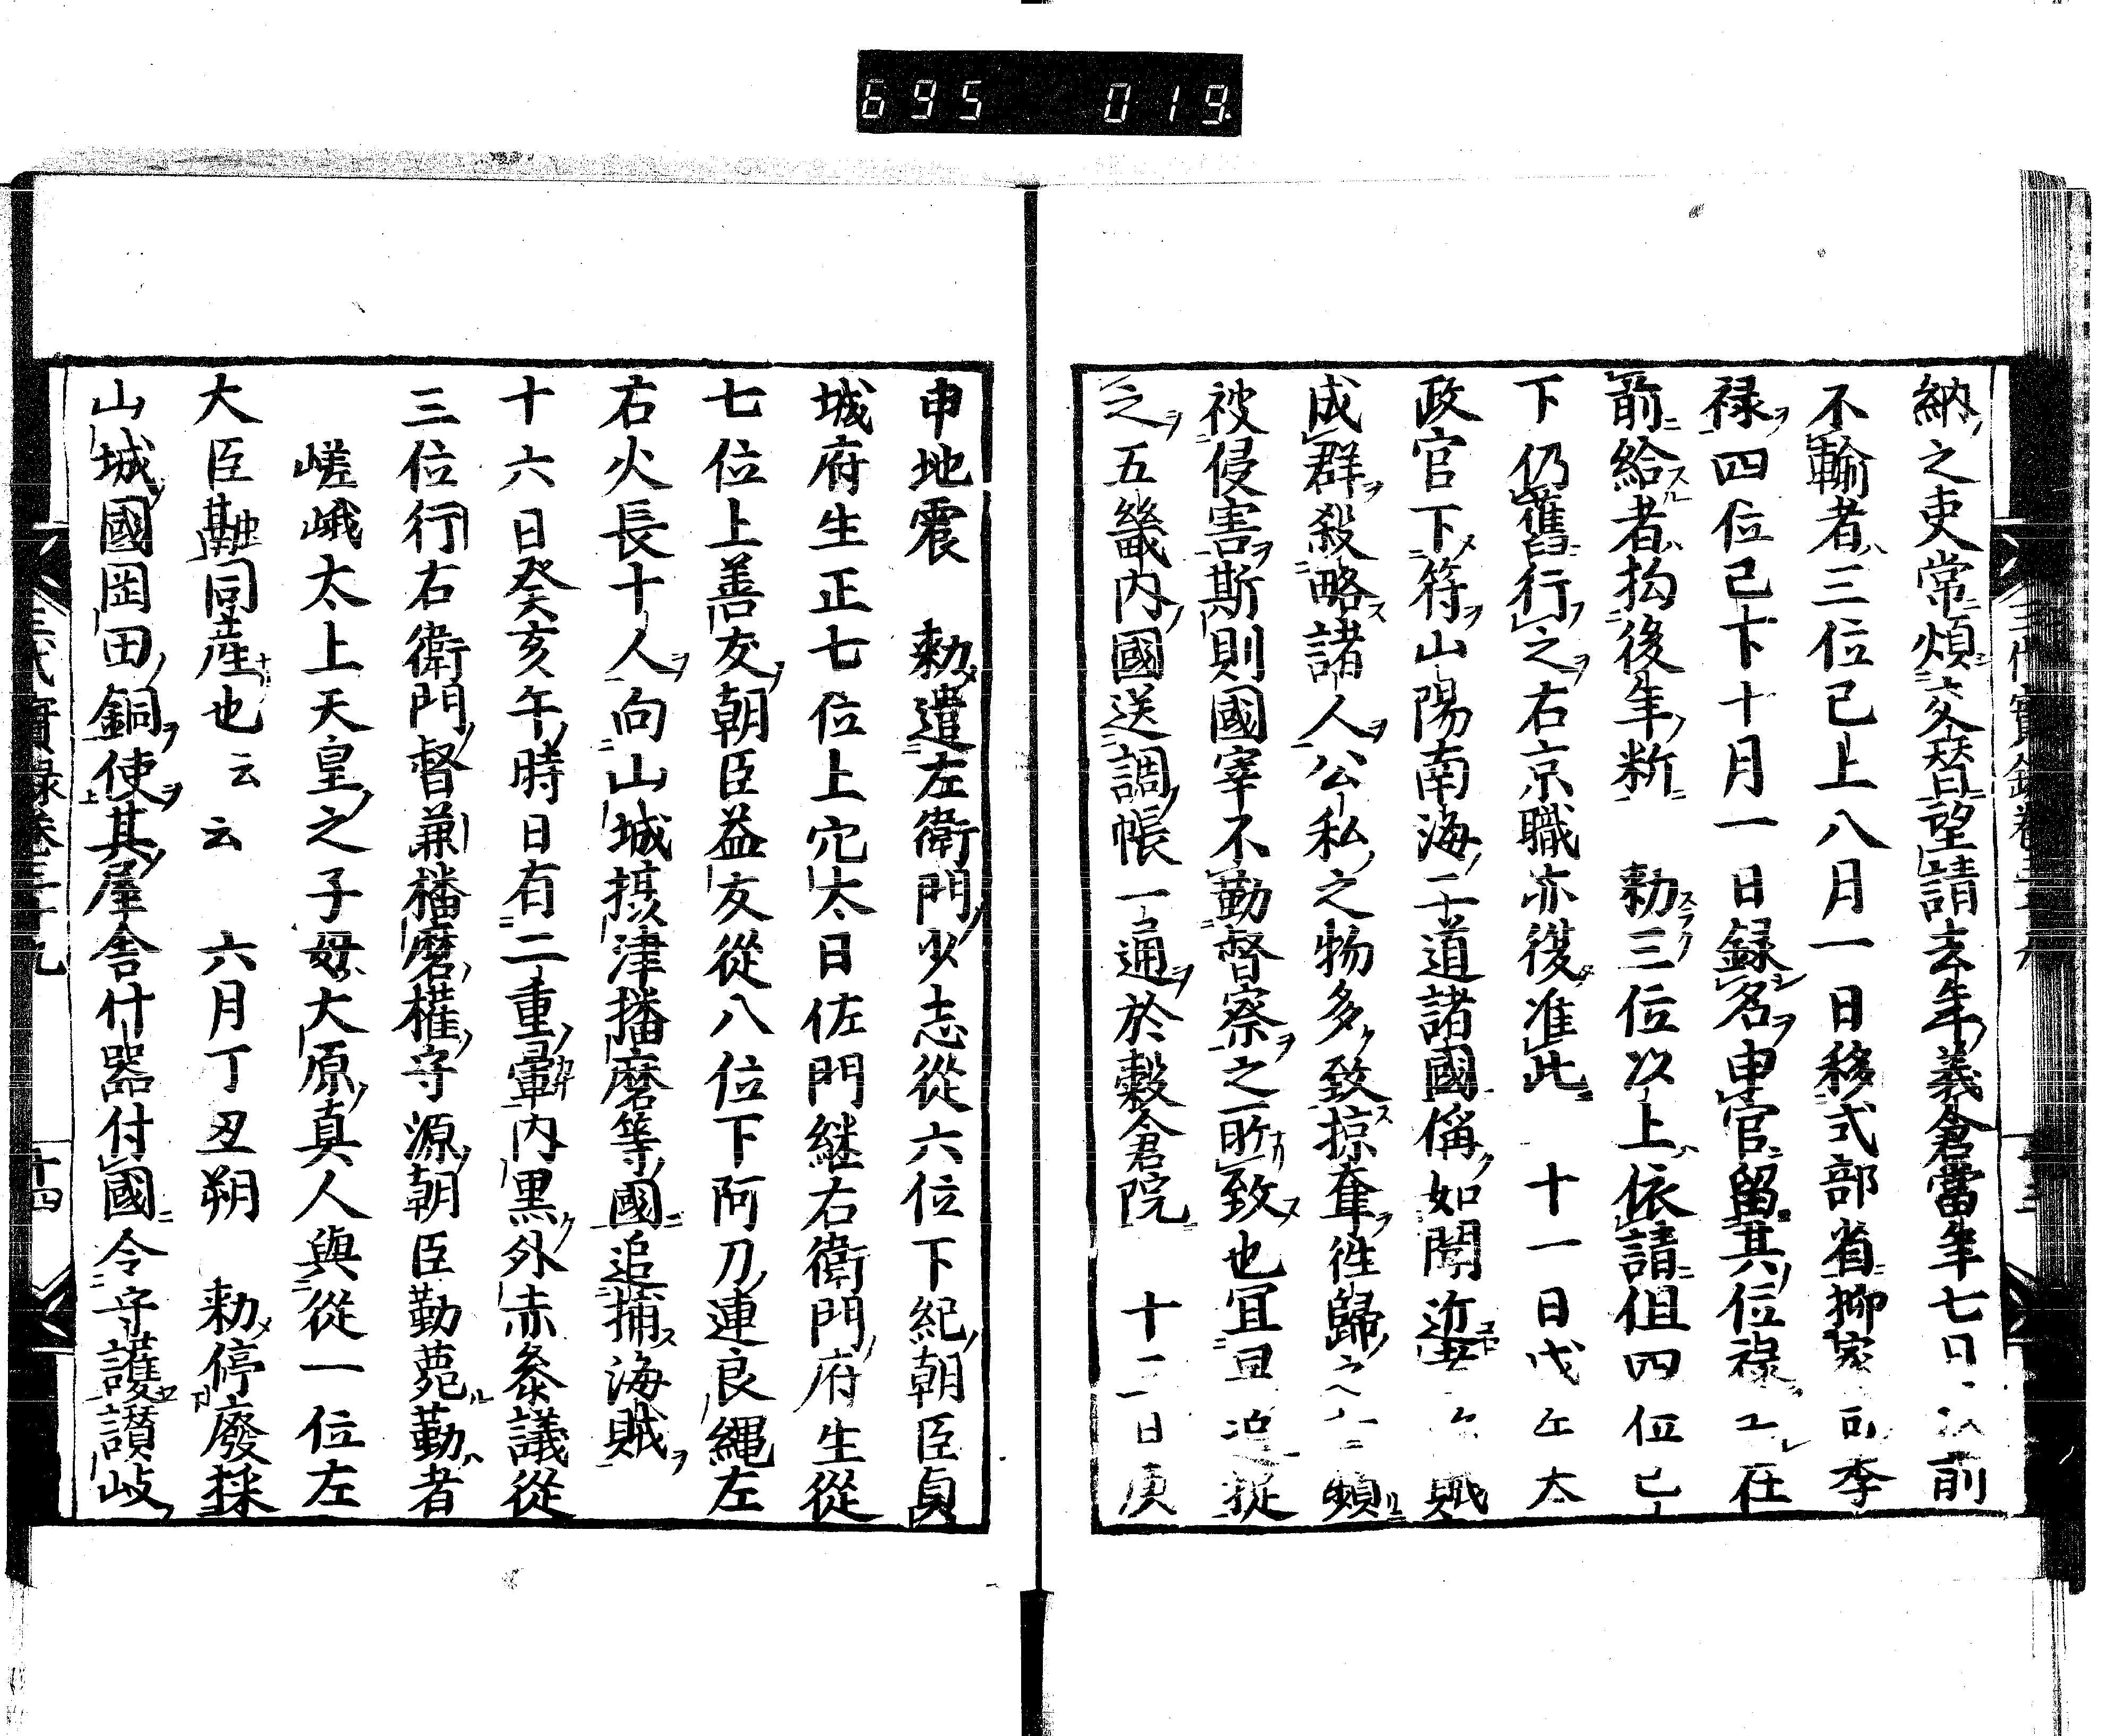 695 019
納之吏常煩交替望請去年義倉當年七日前
不輸者三位已上八月一日移式部省抑家司季
禄四位已下十月一日録名申官留其位禄在
前給者拘後年断 勅三位以上依請但四位已
下仍舊行之右京職亦復准此 十一日戊午太
政官下符山陽南海二道諸國偁如聞近 賊
成群殺略諸人公私之物多致掠奪徃歸 頻
被侵害斯則國宰不勤督察之所致也宜 追捉
之五畿内國送調帳一通於穀倉院 十二日庚
申地震 勅遣左衛門少志從六位下紀朝臣貞
城府生正七位上宍太日佐門継右衛門府生從
七位上善友朝臣益友從八位下阿刀連良縄左
右火長十人向山城摂津播磨等國追捕海賊
十六日癸亥午時日有二重暈内黒外赤叅議從
三位行右衛門督兼播磨權守源朝臣勤薨勤者
嵯峨太上天皇之子母大原真人與從一位左
大臣融同産也云云 六月丁丑朔 勅停廢採
山城國岡田銅使其屋舎什器付國令守護讃岐
三代實録卷三十九
十四